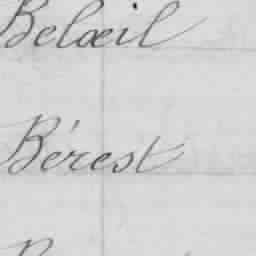 Belœil
Bérest